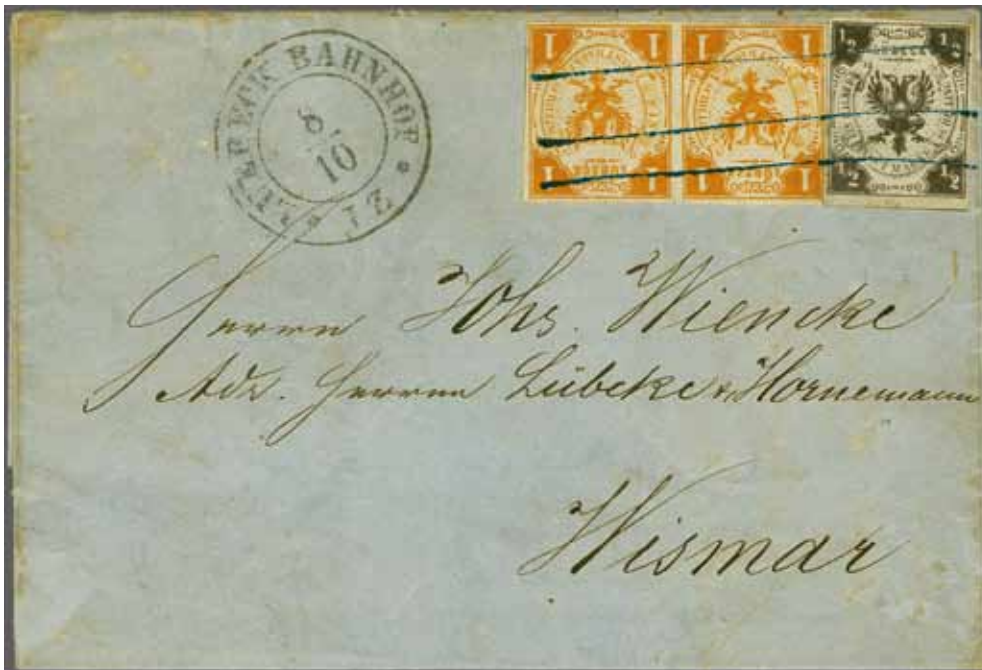 LUEBECK BAHNHOF Z 1
8
10
1 1 1 1
1 1 1 1
½ ½
LÜBECK
½ ½
Herrn Johs. Wiencke
Adr. Herren Lübcke & Hornemann
Wismar